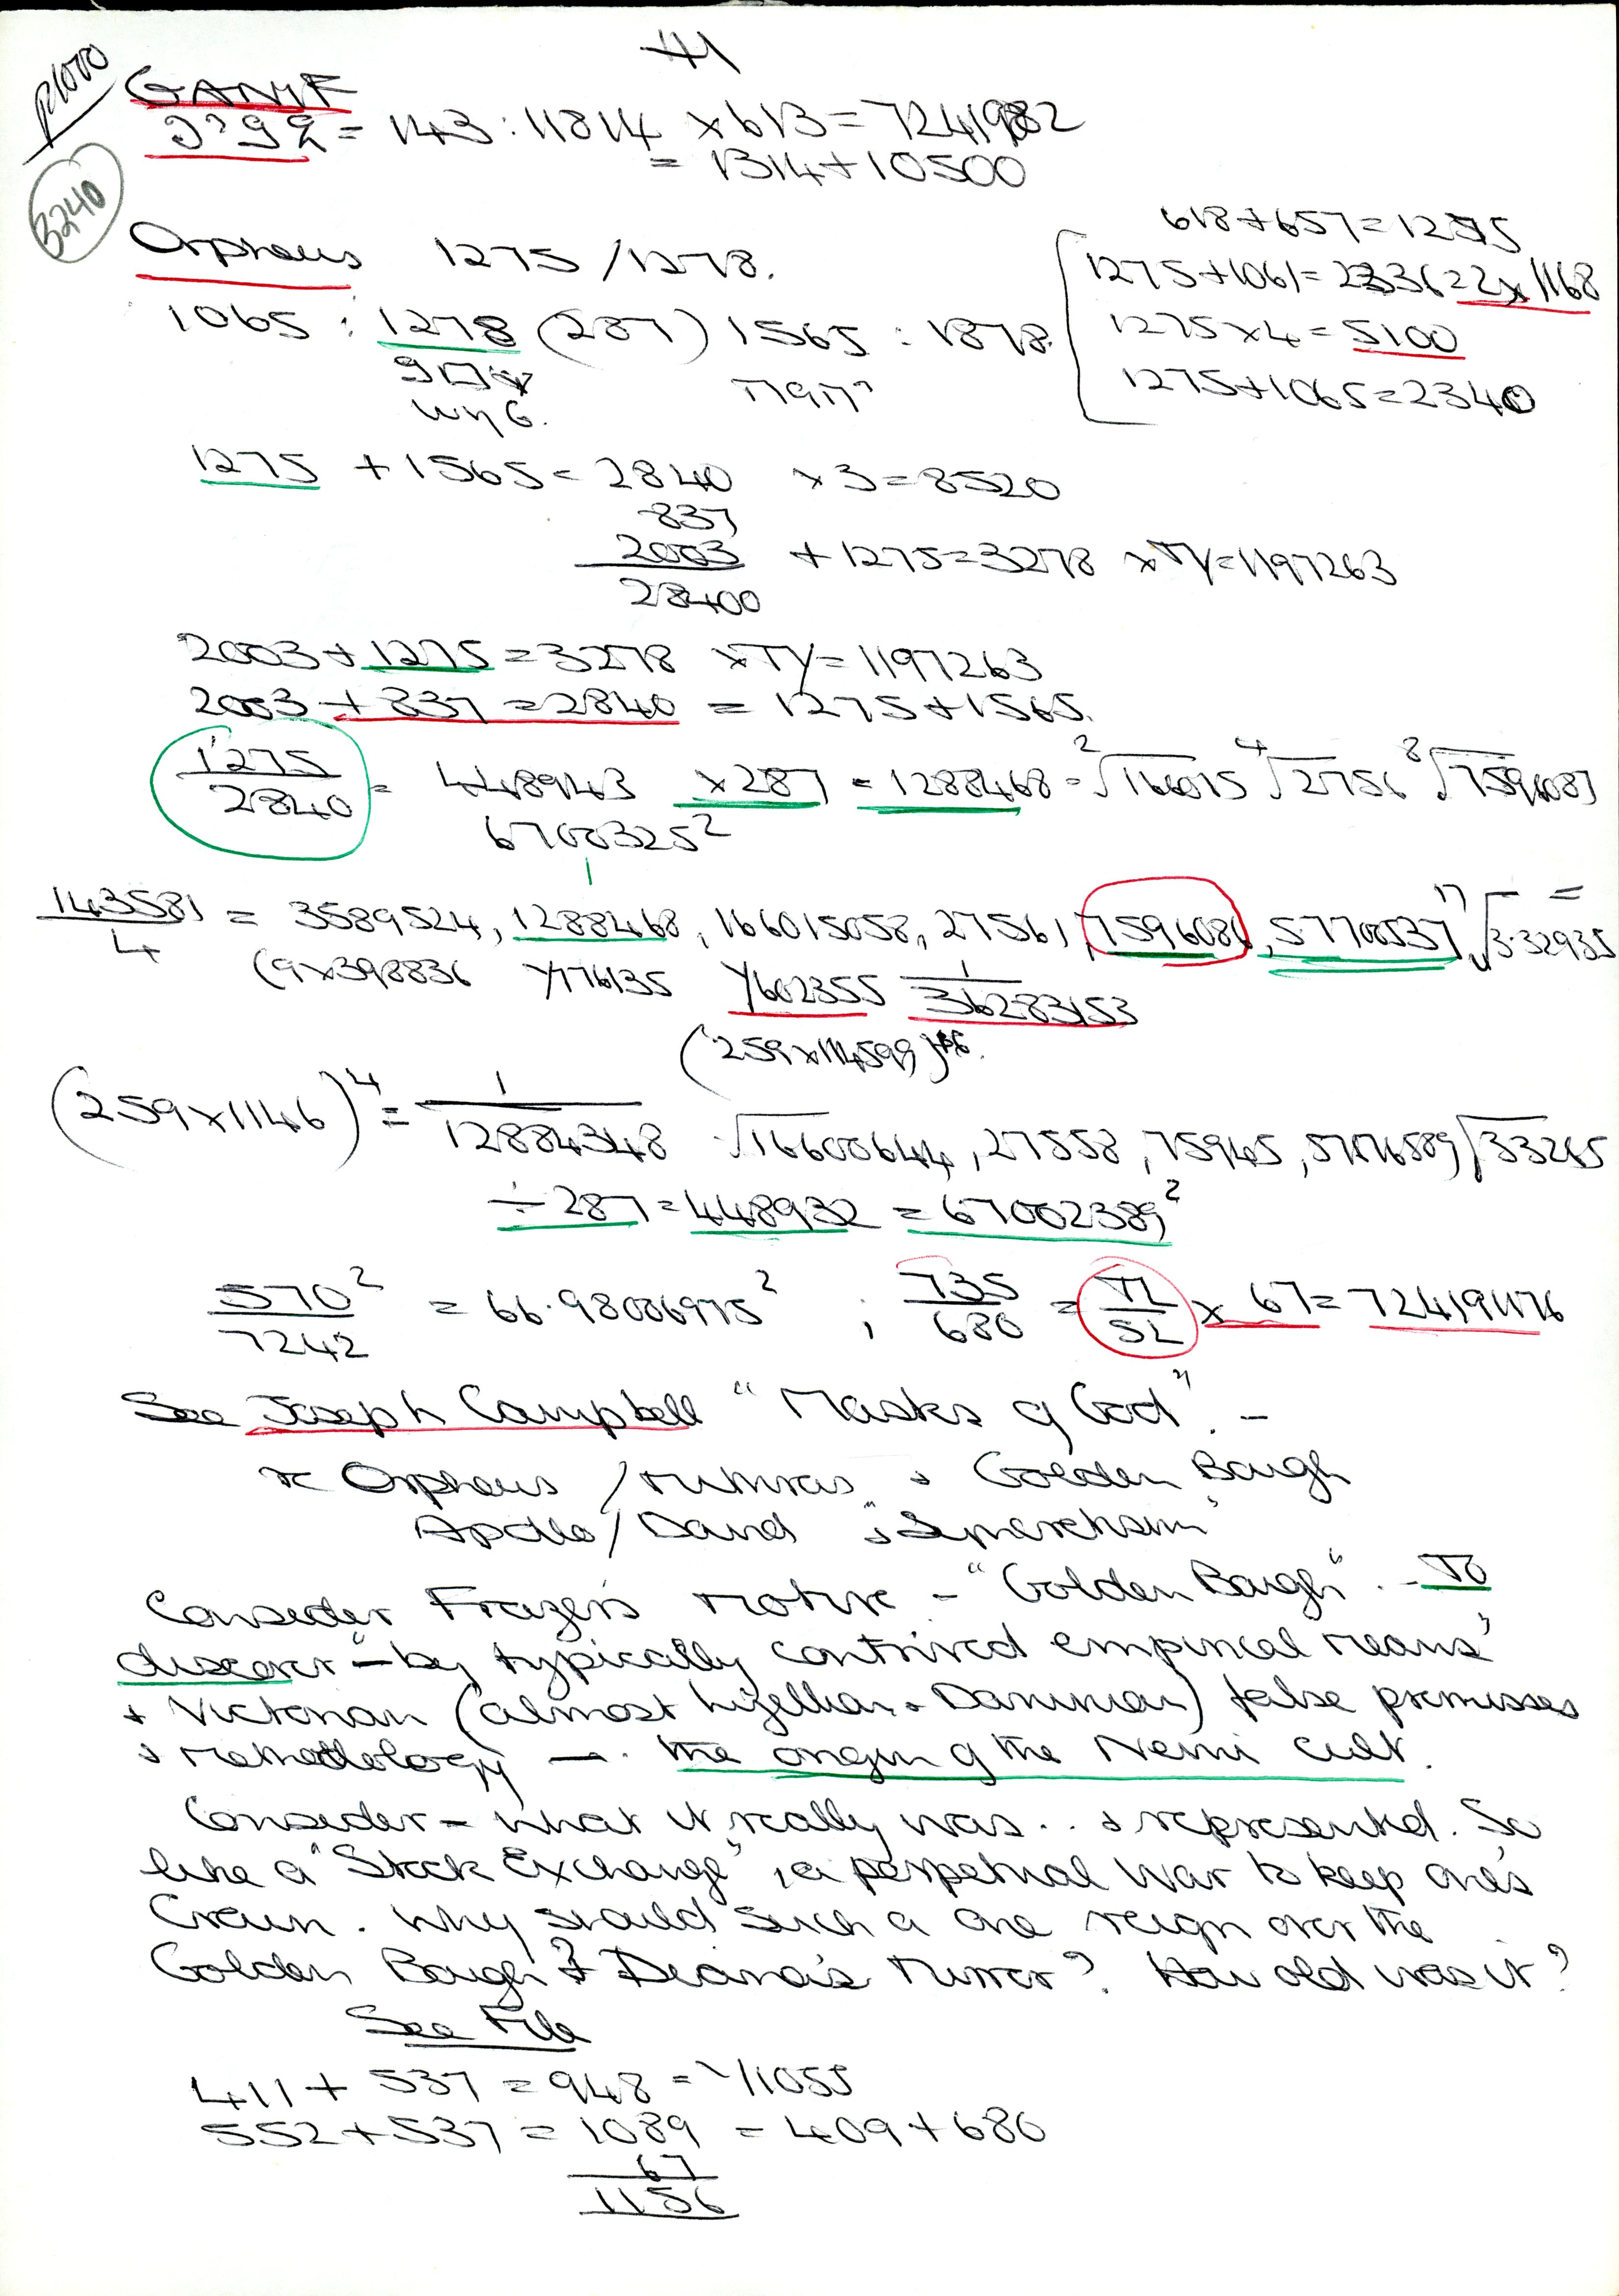 41
R1000
3240
GANYF
= 143 : 11814 × 613 = 7241982
= 1314 + 10500
Orpheus 1275 / 1278.
1065 : 1278 (287) 1565 : 1878.
618 + 657 = 1275
1275 + 1061 = 2336 = 2 × 1168
1275 × 4 = 5100
1275 + 1065 = 2340
1275 + 1565 = 2840 × 3 = 8520
837
2003 + 1275 = 3278 × TY = 1197263
28400
2003 + 1275 = 3278 × TY = 1197263
2003 + 837 = 2840 = 1275 + 1565.
1275/2840 = 4489143 × 287 = 1288468 = ²√166015 ⁴√2756 ⁸√7596087
6700325²
143581/4 = 3589524, 1288468, 166015058, 27561, 7596086, 57700537, ¹⁷√3.32935 =
(9×398836 Y776135 Y602355 1/36283153
(259×114599)
(259×1146)⁴ = 1/12884348 √16600644, 27558, 75945, 57076589 √33265
÷ 287 = 448932 = 67002389²
570²/7242 = 66.98006975² ; 735/680 = TL/SL × 67 = 724191176
See Joseph Campbell "Masks of God". –
re Orpheus / Mithras + Golden Bough
Apollo / David
Consider Frazer's motive – "Golden Bough". – To
discover – by "typically contrived empirical means"
+ Victorian (almost Lyellian + Darwinian) false premisses
+ methodology – the origin of the Nemi cult.
Consider – what it really was.. + represented. So
like a "Stock Exchange", a perpetual war to keep one's
Crown. Why should such a one reign over the
Golden Bough & Diana's Mirror? How old was it?
See File
411 + 537 = 948 = Y1055
552 + 537 = 1089 = 409 + 680
67
1156